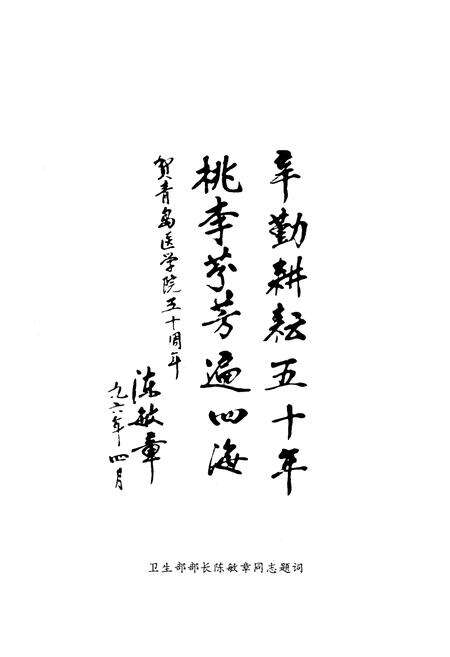 辛勤耕耘五十年
桃李芬芳遍四海
贺青岛医学院五十周年
陈敏章
一九九六年四月
卫生部部长陈敏章同志题词